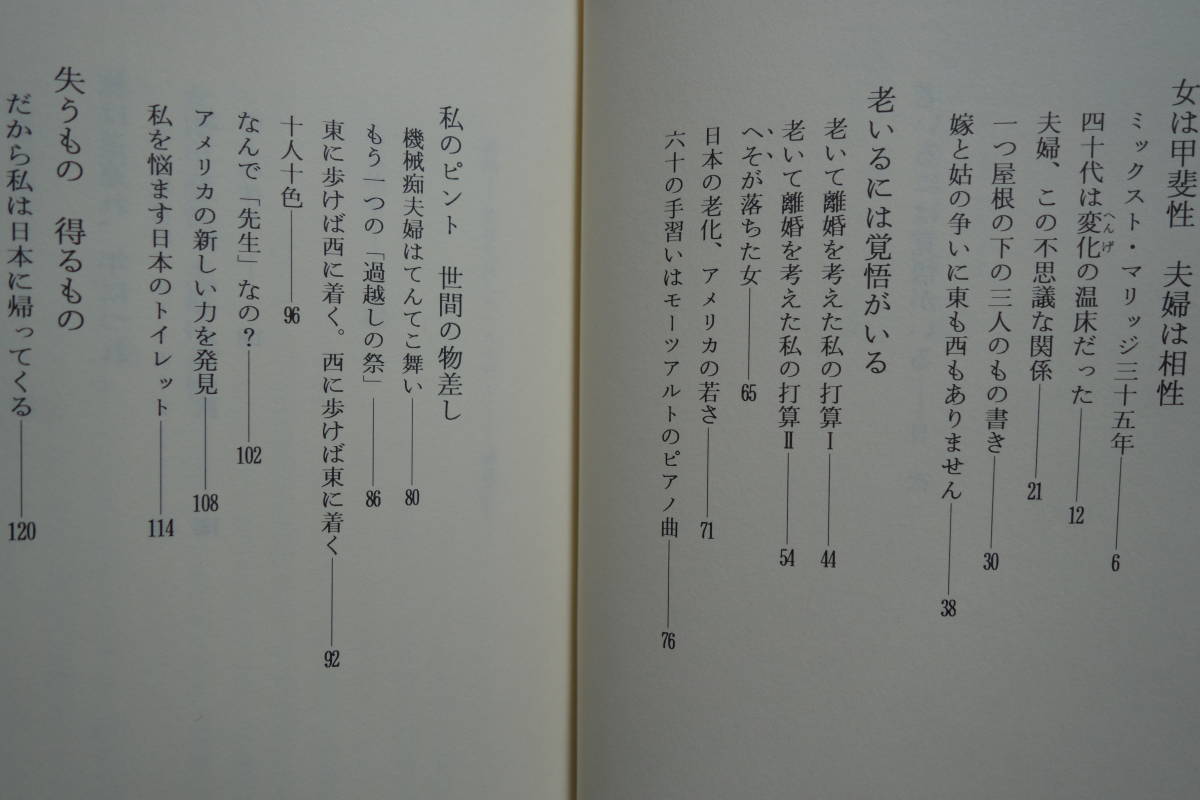 女は甲斐性　夫婦は相性
ミックスト・マリッジ三十五年――6
四十代は変化の温床だった――12
へんげ
夫婦、この不思議な関係――21
一つ屋根の下の三人のもの書き――30
嫁と姑の争いに東も西もありません――38
老いるには覚悟がいる
老いて離婚を考えた私の打算Ⅰ――44
老いて離婚を考えた私の打算Ⅱ――54
へそが落ちた女――65
日本の老化、アメリカの若さ――71
六十の手習いはモーツアルトのピアノ曲――76
私のピント　世間の物差し
機械痴夫婦はてんてこ舞い――80
もう一つの「過越しの祭」――86
東に歩けば西に着く。西に歩けば東に着く――92
十人十色――96
なんで「先生」なの？――102
アメリカの新しい力を発見――108
私を悩ます日本のトイレット――114
失うもの　得るもの
だから私は日本に帰ってくる――120